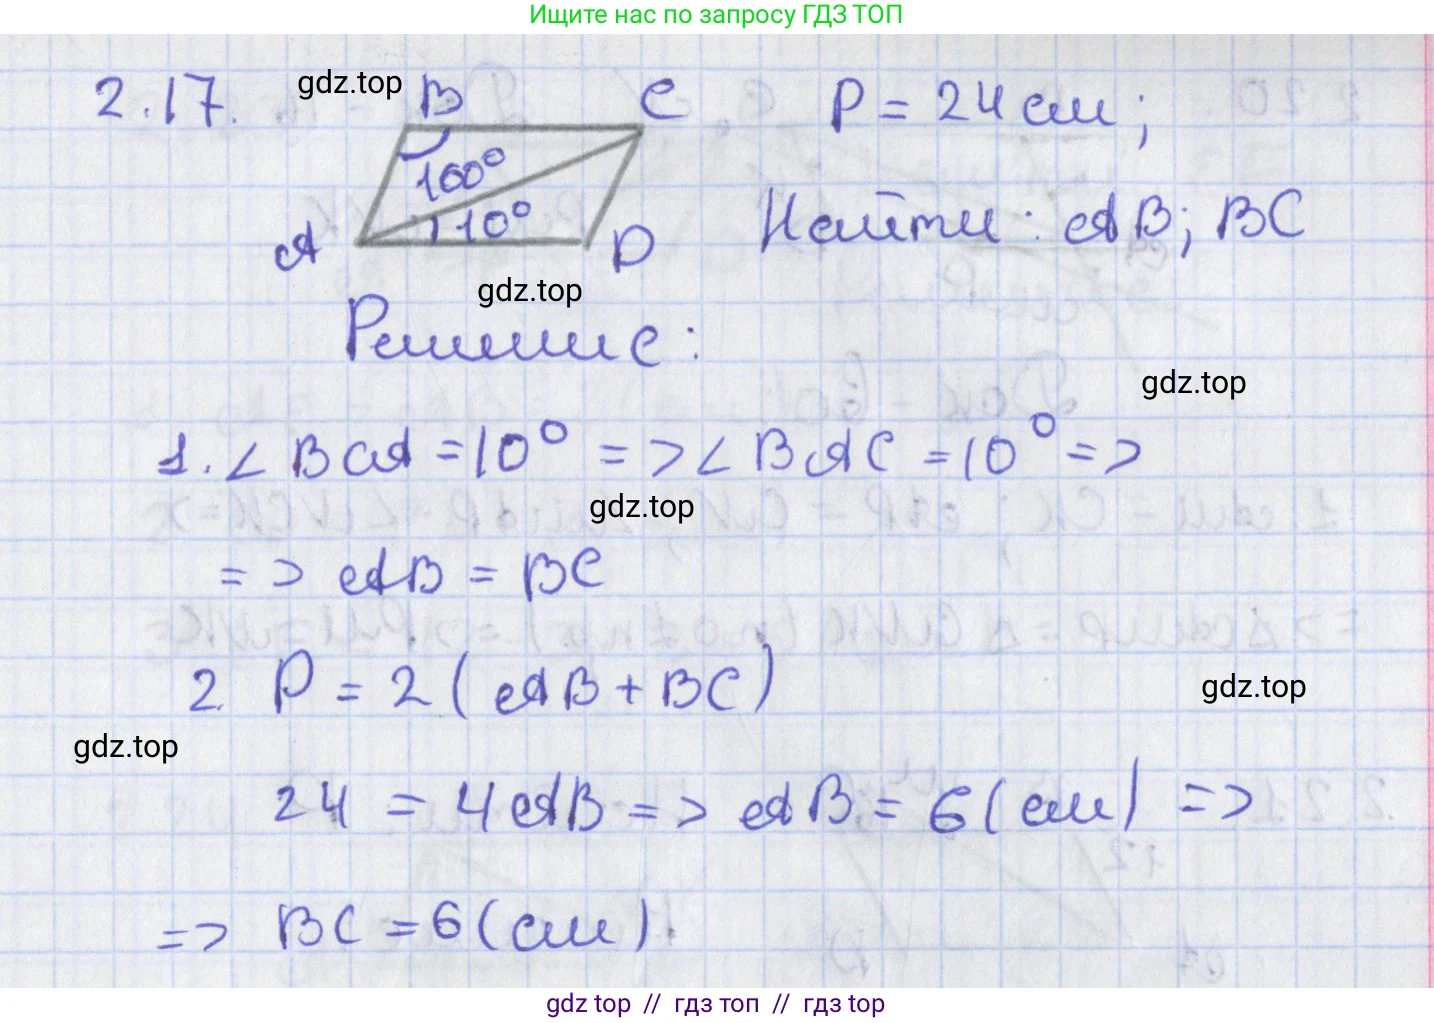 Ищите нас по запросу ГДЗ ТОП
2.17.
gdz.top
B
C
P = 24 см;
160°
10°
A
D
Найти: AB; BC
gdz.top
Решение:
gdz.top
1. ∠BCA = 10° => ∠BAC = 10° =>
gdz.top
=> AB = BC
2. P = 2(AB + BC)
gdz.top
gdz.top
24 = 4AB => AB = 6(см) =>
=> BC = 6(см).
gdz top // гдз топ // гдз top